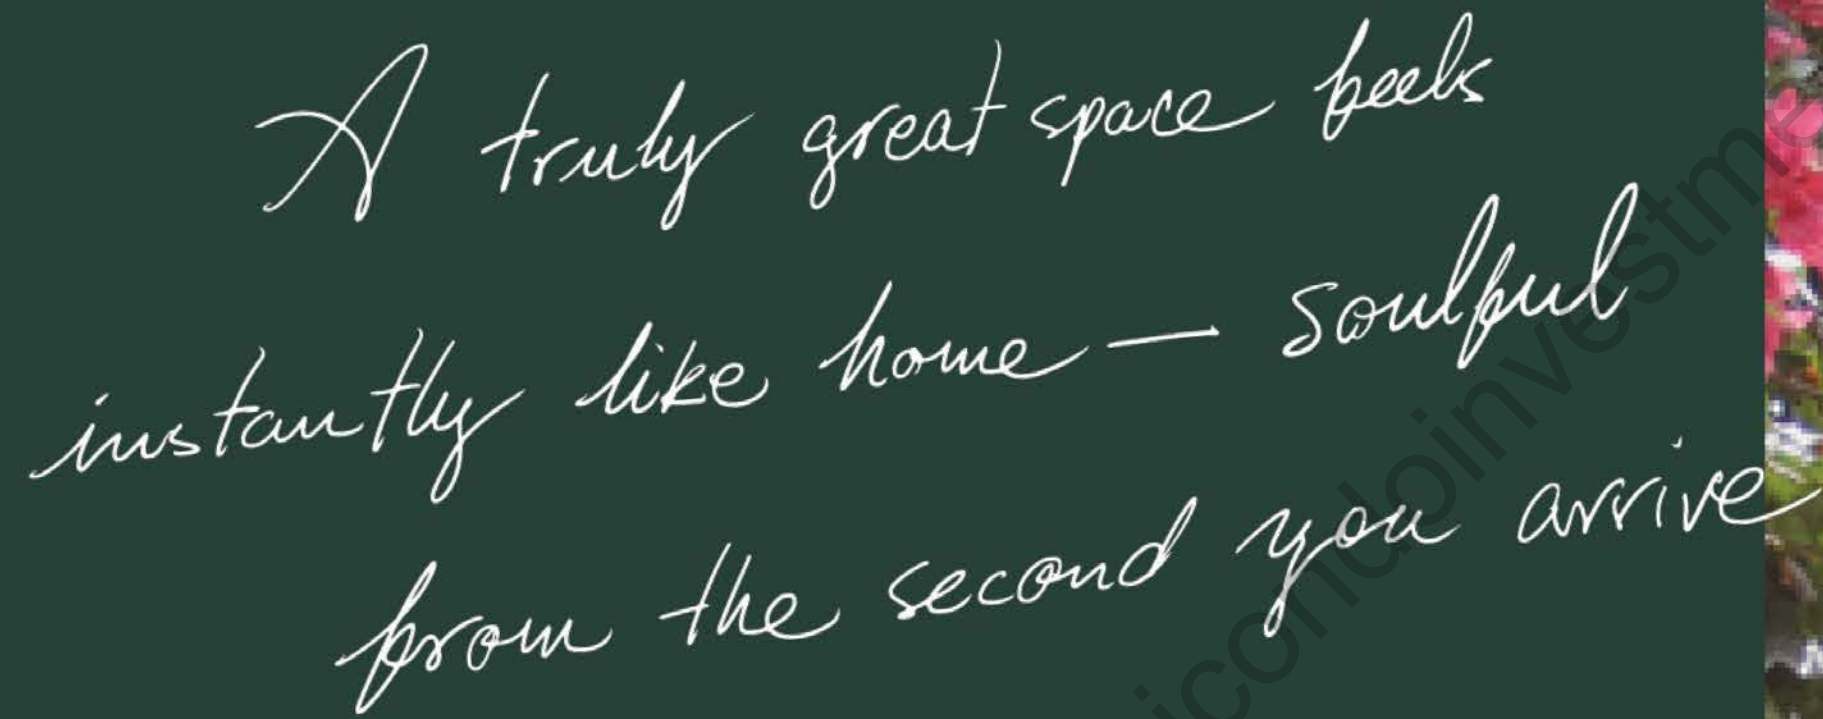 A truly great space feels
instantly like home — soulful
from the second you arrive
icondoinvestme